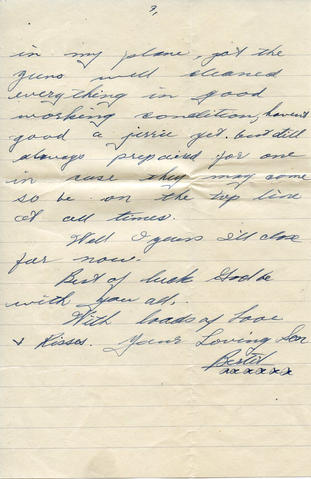 3,
in my plane, got the
guns well cleaned
everything in good
working condition, haven't
good a jerrie yet. but still
always prepaired for one
in case they may come
so be on the top line
at all times.
Well I guess I'll close
for now.
Best of luck God be
with you all,
With loads of Love
& Kisses. Your Loving Son
xxxxx